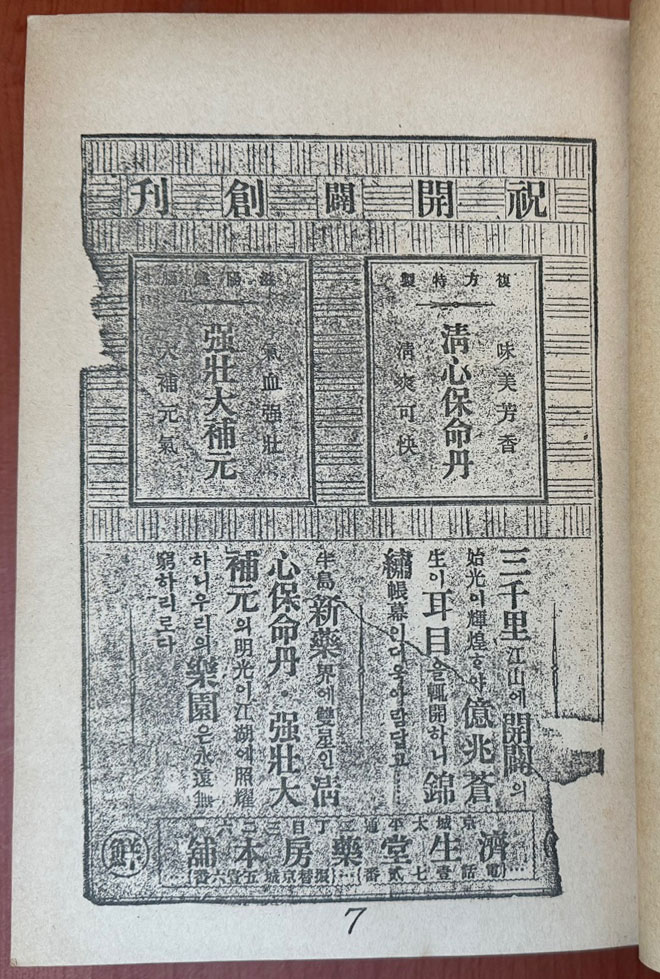 祝開闢創刊
復方特製
味美芳香
清心保命丹
清爽可快
氣血強壯
强壯大補元
大補元氣
三千里江山에開闢의
始光이輝煌ᄒᆞ야億兆蒼
生이耳目을輒開하니錦
繡帳幕이더욱아람답고……
半島新藥界에雙星인淸
心保命丹・强壯大
補元의明光이江湖에照耀
하니우리의樂園은永遠無
窮하리로다
京城太平通丁目三二六
濟生堂藥房本舖
電話壹七貳番
振替京城五壹六番
鮮
7